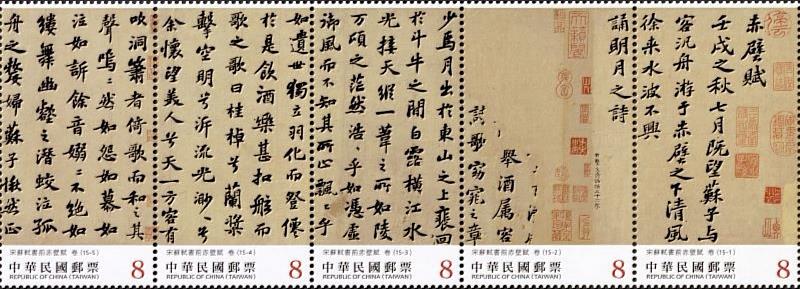 赤壁賦
壬戌之秋七月既望蘇子与
客汎舟游于赤壁之下清風
徐来水波不興
宋蘇軾書前赤壁賦 卷 (15-1)
中華民國郵票 8
REPUBLIC OF CHINA (TAIWAN)
誦明月之詩
舉酒属客
詩歌窈窕之章
宋蘇軾書前赤壁賦 卷 (15-2)
中華民國郵票 8
REPUBLIC OF CHINA (TAIWAN)
少焉月出於東山之上裴回
於斗牛之間白露横江水
光接天縱一葦之所如陵
万頃之茫然浩〻乎如憑虚
御風而不知其所止飄〻乎
宋蘇軾書前赤壁賦 卷 (15-3)
中華民國郵票 8
REPUBLIC OF CHINA (TAIWAN)
如遺世獨立羽化而登僊
於是飲酒樂甚扣舷而
歌之歌曰桂棹兮蘭槳
擊空明兮泝流光渺〻兮
余懷望美人兮天一方客有
宋蘇軾書前赤壁賦 卷 (15-4)
中華民國郵票 8
REPUBLIC OF CHINA (TAIWAN)
吹洞簫者倚歌而和之其
聲嗚〻然如怨如慕如
泣如訴餘音嫋〻不絶如
縷舞幽壑之潛蛟泣孤
舟之嫠婦蘇子愀然正
宋蘇軾書前赤壁賦 卷 (15-5)
中華民國郵票 8
REPUBLIC OF CHINA (TAIWAN)